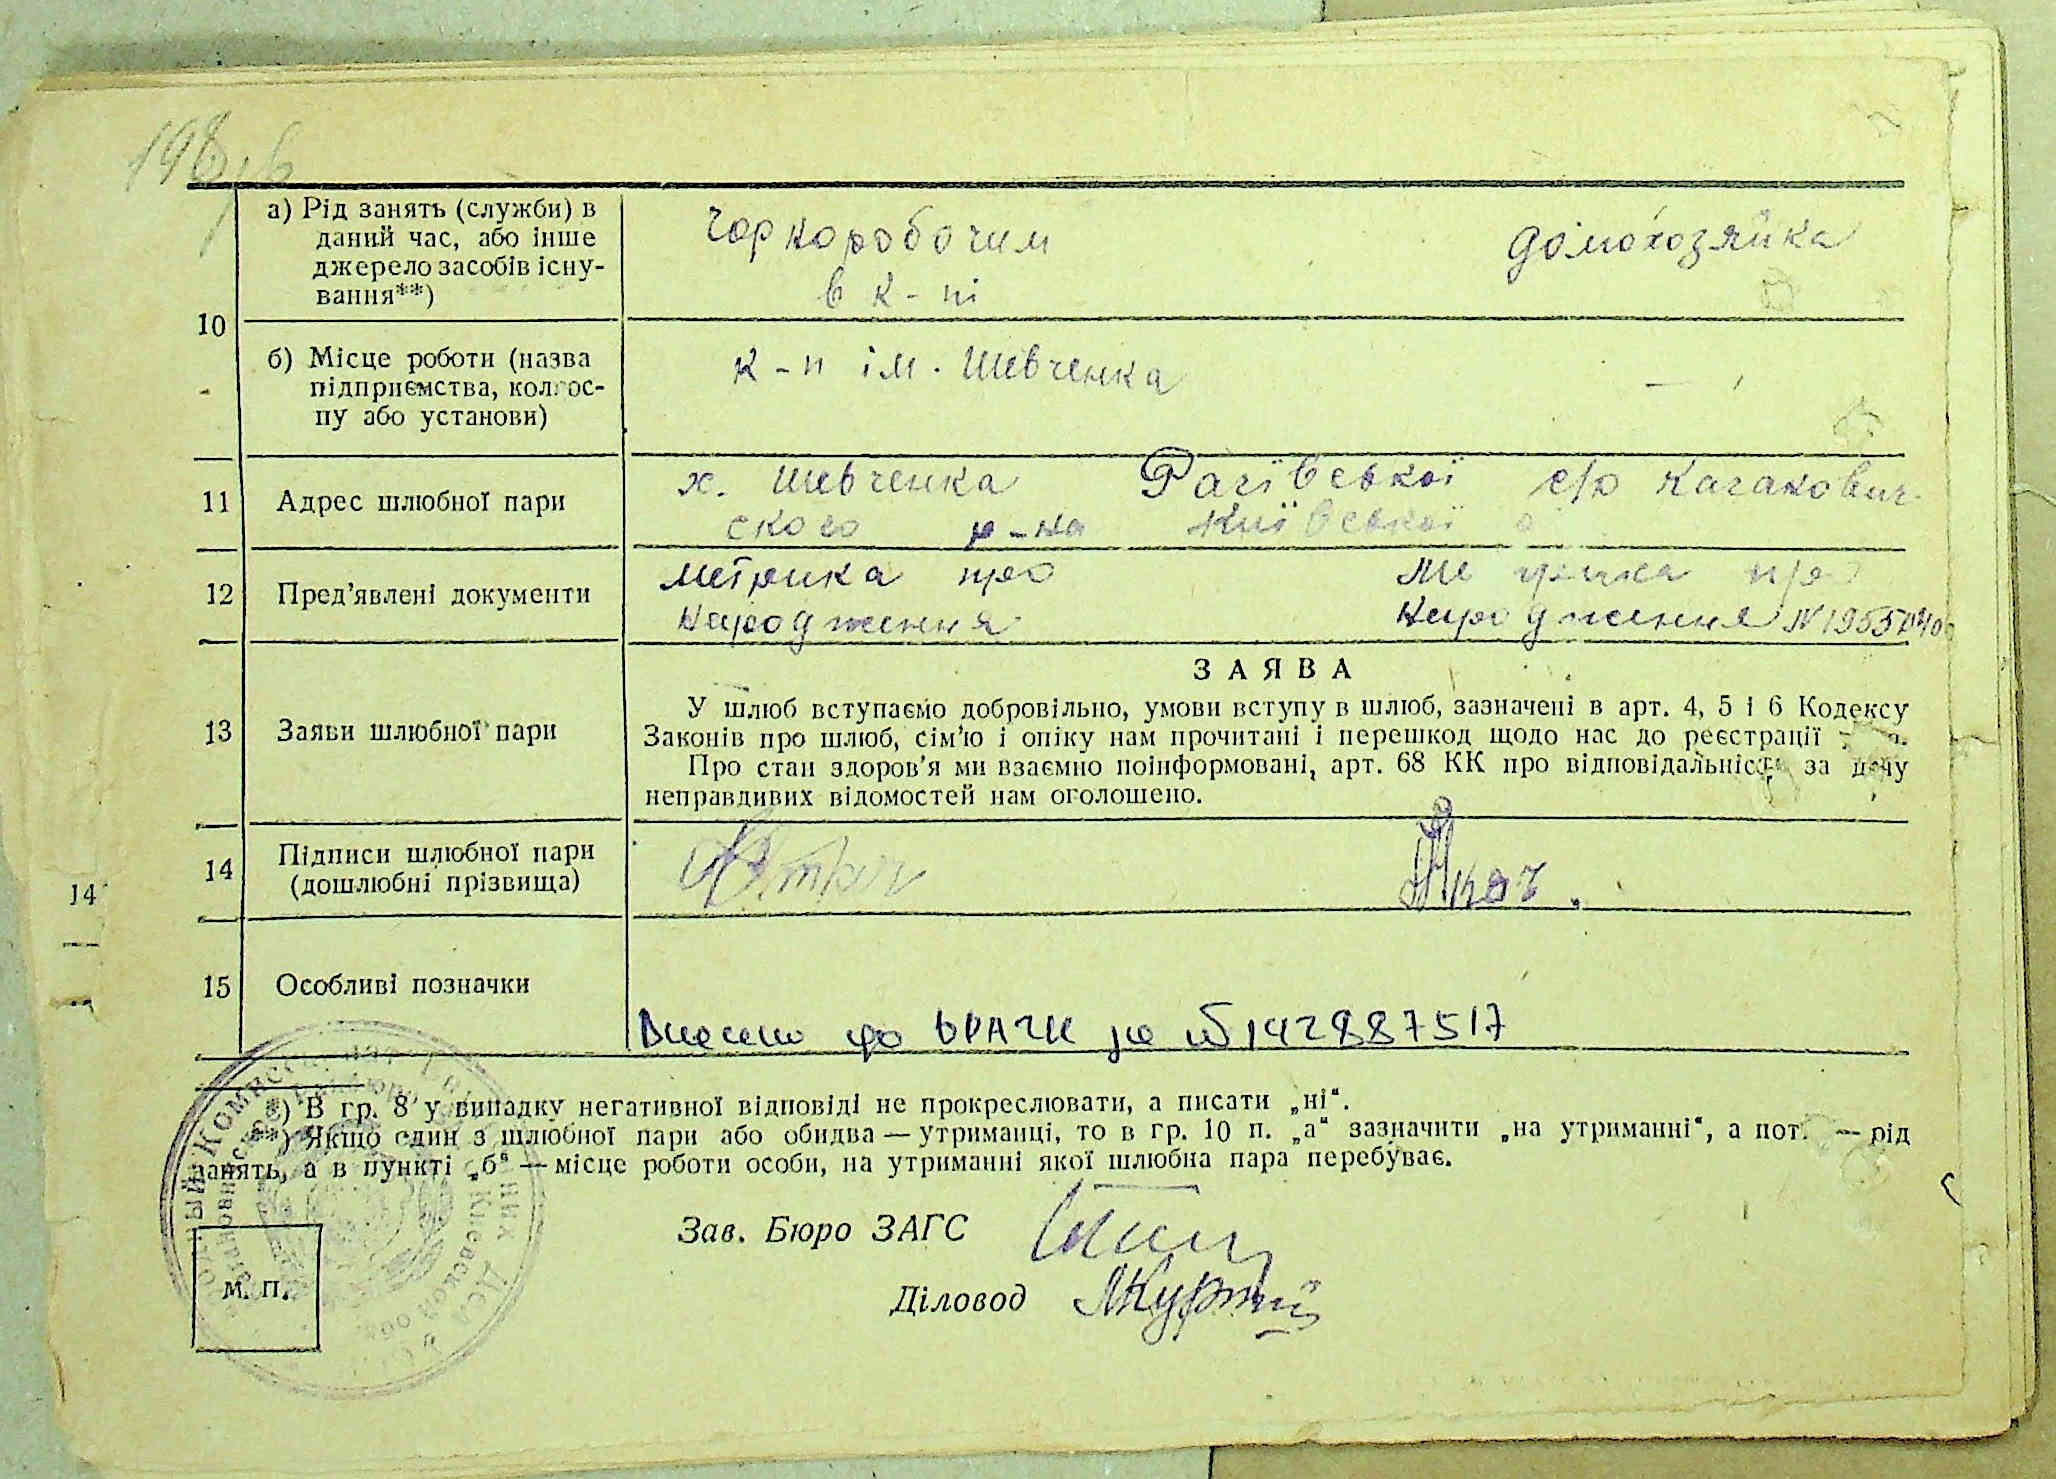 а) Рід занять (служби) в
даний час, або інше
джерело засобів існу-
вання**)
Чорноробочим
домохозяйка
в к-пі
10
б) Місце роботи (назва
підприємства, колгос-
пу або установи)
к-п ім. Шевченка
—
11
Адрес шлюбної пари
х. Шевченка Рагівської с/р Кагакович-
ского р-на Київської о
12
Пред’явлені документи
Метрика про
народження
Метрика про
народження N
13
Заяви шлюбної пари
ЗАЯВА
У шлюб вступаємо добровільно, умови вступу в шлюб, зазначені в арт. 4, 5 і 6 Кодексу
Законів про шлюб, сім’ю і опіку нам прочитані і перешкод щодо нас до реєстрації
Про стан здоров’я ми взаємно поінформовані, арт. 68 КК про відповідальність за дачу
неправдивих відомостей нам оголошено.
14
14
Підписи шлюбної пари
(дошлюбні прізвища)
15
Особливі позначки
Внесено до ДРАЦС за №142887517
*) В гр. 8 у випадку негативної відповіді не прокреслювати, а писати „ні“.
**) Якщо один з шлюбної пари або обидва — утриманці, то в гр. 10 п. „а“ зазначити „на утриманні“, а пот. — рід
занять, а в пункті „б“ — місце роботи особи, на утриманні якої шлюбна пара перебуває.
Зав. Бюро ЗАГС
Діловод
М. П.